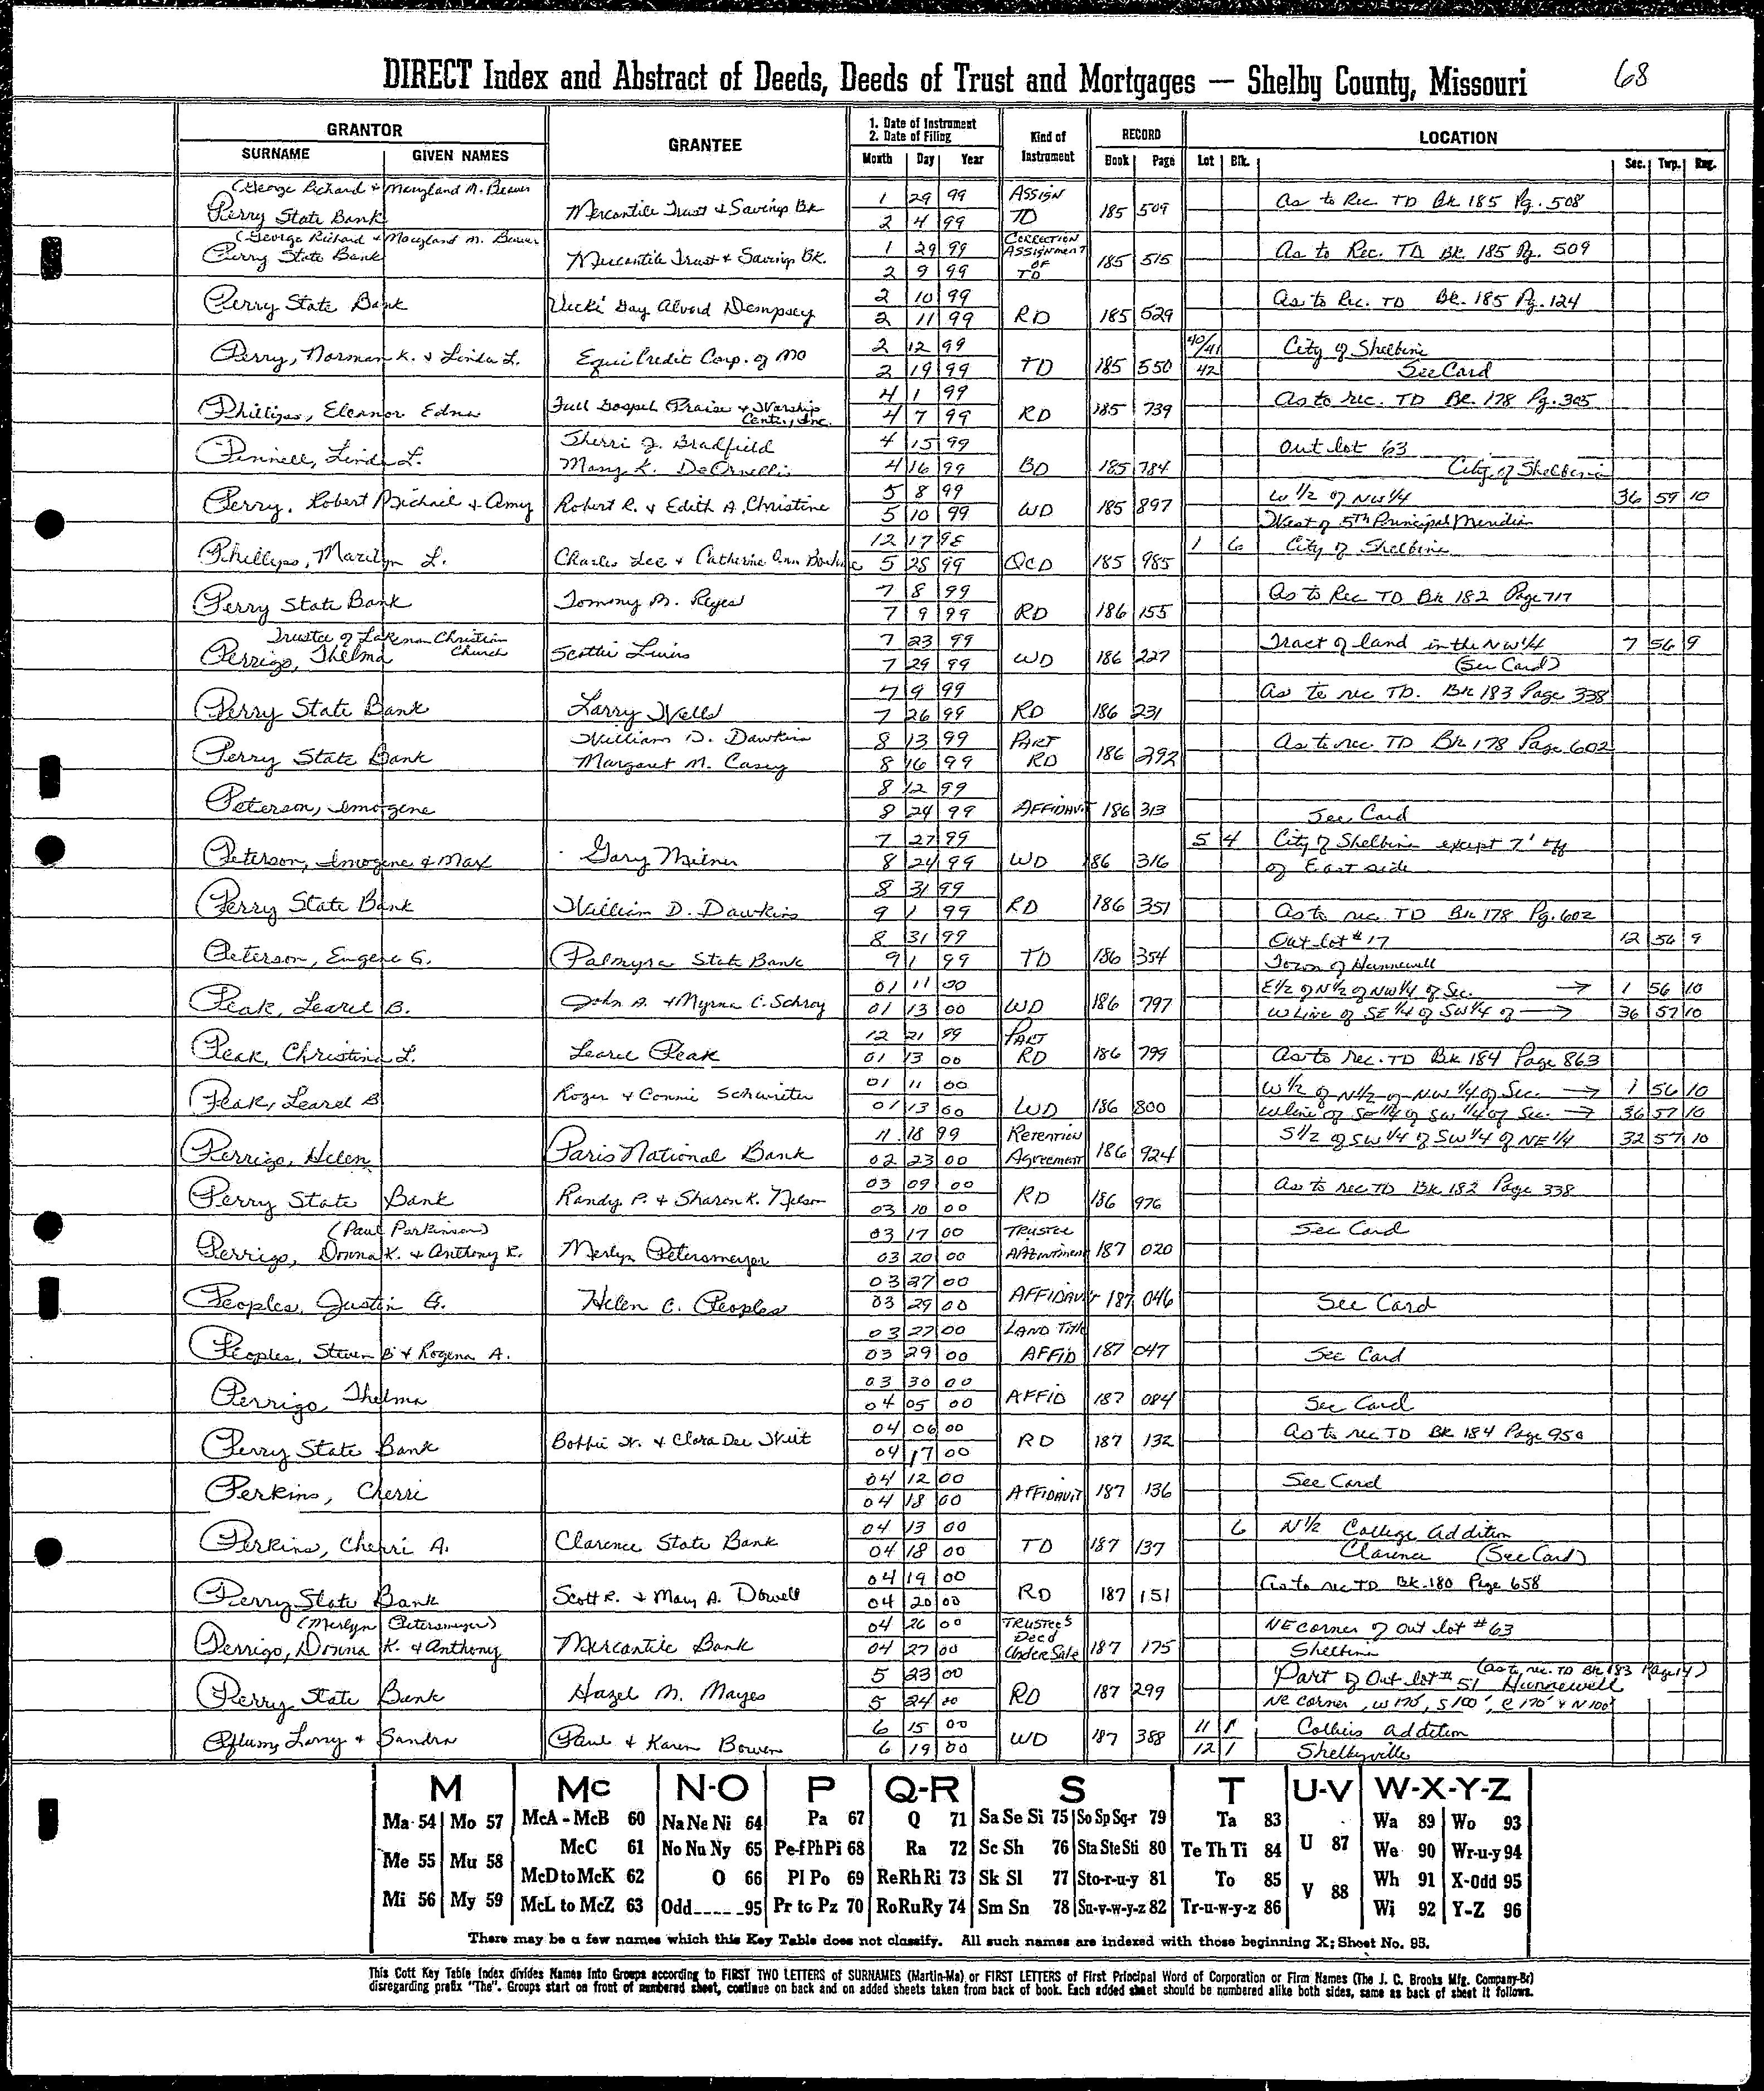 DIRECT Index and Abstract of Deeds, Deeds of Trust and Mortgages — Shelby County, Missouri 68
GRANTOR GRANTEE 1. Date of Instrument 2. Date of Filing Kind of Instrument RECORD LOCATION
SURNAME GIVEN NAMES Month Day Year Book Page Lot Blk. Sec. Twp. Rng.
(George Richard & Maryland M. Beaver 1 29 99 ASSIGN As to Rec TD Bk 185 Pg. 508
Perry State Bank Mercantile Trust & Savings Bk 2 4 99 TD 185 509
(George Richard & Maryland M. Beaver 1 29 99 CORRECTION ASSIGNMENT As to Rec. TD Bk. 185 Pg. 509
Perry State Bank Mercantile Trust & Savings Bk. 2 9 99 OF TD 185 515
2 10 99 As to Rec. TD Bk. 185 Pg. 124
Perry State Bank Vicki Gay Alvord Dempsey 2 11 99 RD 185 529
2 12 99 40/41 City of Shelbina
Perry, Norman K. & Linda L. Equi Credit Corp. of MO 2 19 99 TD 185 550 42 See Card
4 1 99 As to rec. TD Bk. 178 Pg. 305
Phillips, Eleanor Edna Full Gospel Praise & Worship Center, Inc. 4 7 99 RD 185 739
Sherri J. Bradfield 4 15 99 Out lot 63
Pennell, Linda L. Mary K. 4 16 99 BD 185 784 City of Shelbina
5 8 99 W 1/2 of NW 1/4 36 57 10
Perry, Robert Michael & Amy Robert R. & Edith A. Christine 5 10 99 WD 185 897 West of 5th Principal Meridian
12 17 98 1 6 City of Shelbina
Phillips, Marilyn L. Charles Lee & Catherine Ann 5 25 99 QCD 185 985
7 8 99 As to Rec TD Bk 182 Page 717
Perry State Bank Tommy M. Reyes 7 9 99 RD 186 155
Trustee of Lakenan Christian Church 7 23 99 Tract of land in the NW 1/4 7 56 9
Perrigo, Thelma Scottie 7 29 99 WD 186 227 (See Card)
7 9 99 As to rec TD. Bk 183 Page 338
Perry State Bank Larry Wells 7 26 99 RD 186 231
William D. Dawkins 8 13 99 PART As to rec. TD Bk 178 Page 602
Perry State Bank Margaret M. Casey 8 16 99 RD 186 292
8 12 99
Peterson, Imogene 8 24 99 AFFIDAVIT 186 313 See Card
7 27 99 5 4 City of Shelbina except 7' off
Peterson, Imogene & Max Gary Milner 8 24 99 WD 186 316 of East side
8 31 99
Perry State Bank William D. Dawkins 9 1 99 RD 186 351 As to rec. TD Bk 178 Pg. 602
8 31 99 Out lot #17 12 56 9
Peterson, Eugene G. Palmyra State Bank 9 1 99 TD 186 354 Town of Hunnewell
01 11 00 E 1/2 of N 1/2 of NW 1/4 of Sec. → 1 56 10
Peak, Learel B. John A. & Myrna C. Schroy 01 13 00 WD 186 797 W Line of SE 1/4 of SW 1/4 of → 36 57 10
12 21 99 PART
Peak, Christina L. Learel Peak 01 13 00 RD 186 799 As to rec. TD Bk 184 Page 863
01 11 00 W 1/2 of N 1/2 of NW 1/4 of Sec. → 1 56 10
Peak, Learel B Roger & Connie 01 13 00 WD 186 800 W line of SE 1/4 of SW 1/4 of Sec. → 36 57 10
11 18 99 Retention S 1/2 of SW 1/4 of SW 1/4 of NE 1/4 32 57 10
Perrigo, Helen Paris National Bank 02 23 00 Agreement 186 924
03 09 00 As to rec TD Bk 182 Page 338
Perry State Bank Randy P. & Sharon K. Nelson 03 10 00 RD 186 976
(Paul Parkinson) 03 17 00 TRUSTEE See Card
Perrigo, Donna K. & Anthony R. Merlyn Petersmeyer 03 20 00 Appointment 187 020
03 27 00
Peoples, Justin G. Helen C. Peoples 03 29 00 AFFIDAVIT 187 046 See Card
03 27 00 LAND Title
Peoples, Steven B & Rogena A. 03 29 00 AFFID 187 047 See Card
03 30 00
Perrigo, Thelma 04 05 00 AFFID 187 084 See Card
04 06 00 As to rec TD Bk 184 Page 950
Perry State Bank Bobbie W. & Clora Dee 04 17 00 RD 187 132
04 12 00 See Card
Perkins, Cherri 04 18 00 AFFIDAVIT 187 136
04 13 00 6 N 1/2 College Addition
Perkins, Cherri A. Clarence State Bank 04 18 00 TD 187 137 Clarence (See Card)
04 19 00 As to rec TD Bk. 180 Page 658
Perry State Bank Scott R. & Mary A. Dowell 04 20 00 RD 187 151
(Merlyn Petersmeyer) 04 26 00 TRUSTEE'S Deed NE corner of Out lot #63
Perrigo, Donna K. & Anthony Mercantile Bank 04 27 00 Under Sale 187 175 Shelbina
5 23 00 Part of Out lot # 51 Hunnewell (As to rec. TD Bk 183 Page 14)
Perry State Bank Hazel M. Mayes 5 24 00 RD 187 299 NE corner, W 170', S 100', E 170' & N 100'
6 15 00 11 1 Colliers Addition
Pflumm Larry & Sandra Paul & Karen Bowen 6 19 00 WD 187 388 12 1 Shelbyville
M Mc N-O P Q-R S T U-V W-X-Y-Z
Ma 54 Mo 57 McA - McB 60 Na Ne Ni 64 Pa 67 Q 71 Sa Se Si 75 So Sp Sq-r 79 Ta 83 Wa 89 Wo 93
McC 61 No Nu Ny 65 Pe-f Ph Pi 68 Ra 72 Sc Sh 76 Sta Ste Sti 80 Te Th Ti 84 U 87 We 90 Wr-u-y 94
Me 55 Mu 58 McD to McK 62 O 66 Pl Po 69 Re Rh Ri 73 Sk Sl 77 Sto-r-u-y 81 To 85 Wh 91 X-Odd 95
Mi 56 My 59 McL to McZ 63 Odd 95 Pr to Pz 70 Ro Ru Ry 74 Sm Sn 78 Su-v-w-y-z 82 Tr-u-w-y-z 86 V 88 Wi 92 Y-Z 96
There may be a few names which this Key Table does not classify. All such names are indexed with those beginning X; Sheet No. 95.
This Cott Key Table Index divides Names Into Groups according to FIRST TWO LETTERS of SURNAMES (Martin-Ma) or FIRST LETTERS of First Principal Word of Corporation or Firm Names (The J. C. Brooks Mfg. Company-Br)
disregarding prefix "The". Groups start on front of numbered sheet, continue on back and on added sheets taken from back of book. Each added sheet should be numbered alike both sides, same as back of sheet it follows.